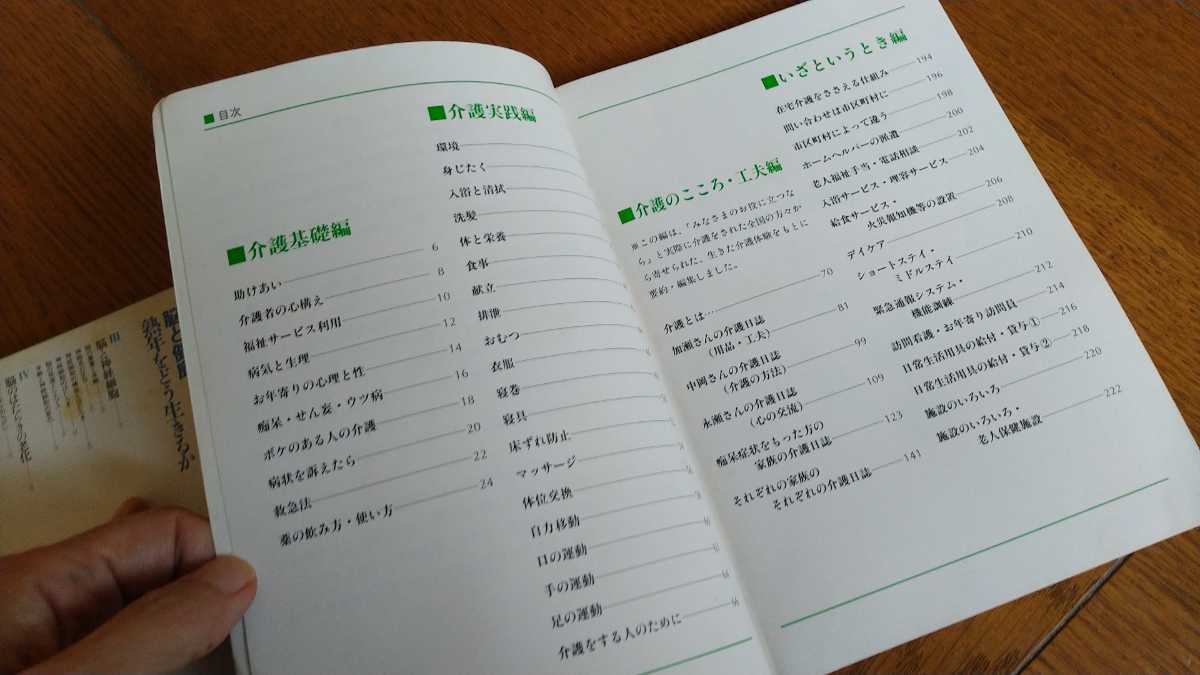 ■目次
■介護基礎編
助けあい 6
介護者の心構え 8
福祉サービス利用 10
病気と生理 12
お年寄りの心理と性 14
痴呆・せん妄・ウツ病 16
ボケのある人の介護 18
病状を訴えたら 20
救急法 22
薬の飲み方・使い方 24
■介護実践編
環境
身じたく
入浴と清拭
洗髪
体と栄養
食事
献立
排泄
おむつ
衣服
寝巻
寝具
床ずれ防止
マッサージ
体位交換
自力移動
口の運動
手の運動
足の運動
介護をする人のために
■介護のこころ・工夫編
※この編は、「みなさまのお役に立つな
ら」と実際に介護をされた全国の方々か
ら寄せられた、生きた介護体験をもとに
要約・編集しました。
介護とは…… 70
加瀬さんの介護日誌 81
（用品・工夫）
中岡さんの介護日誌 99
（介護の方法）
永瀬さんの介護日誌 109
（心の交流）
痴呆症状をもった方の
家族の介護日誌 123
それぞれの家族の
それぞれの介護日誌 141
■いざというとき編
在宅介護をささえる仕組み 194
問い合わせは市区町村に 196
市区町村によって違う 198
ホームヘルパーの派遣 200
老人福祉手当・電話相談 202
入浴サービス・理容サービス 204
給食サービス・
火災報知機等の設置 206
デイケア 208
ショートステイ・
ミドルステイ 210
緊急通報システム・
機能訓練 212
訪問看護・お年寄り訪問員 214
日常生活用具の給付・貸与① 216
日常生活用具の給付・貸与② 218
施設のいろいろ 220
施設のいろいろ・
老人保健施設 222
脳と健康
熟年をどう生きるか
III
脳と神経細胞
IV